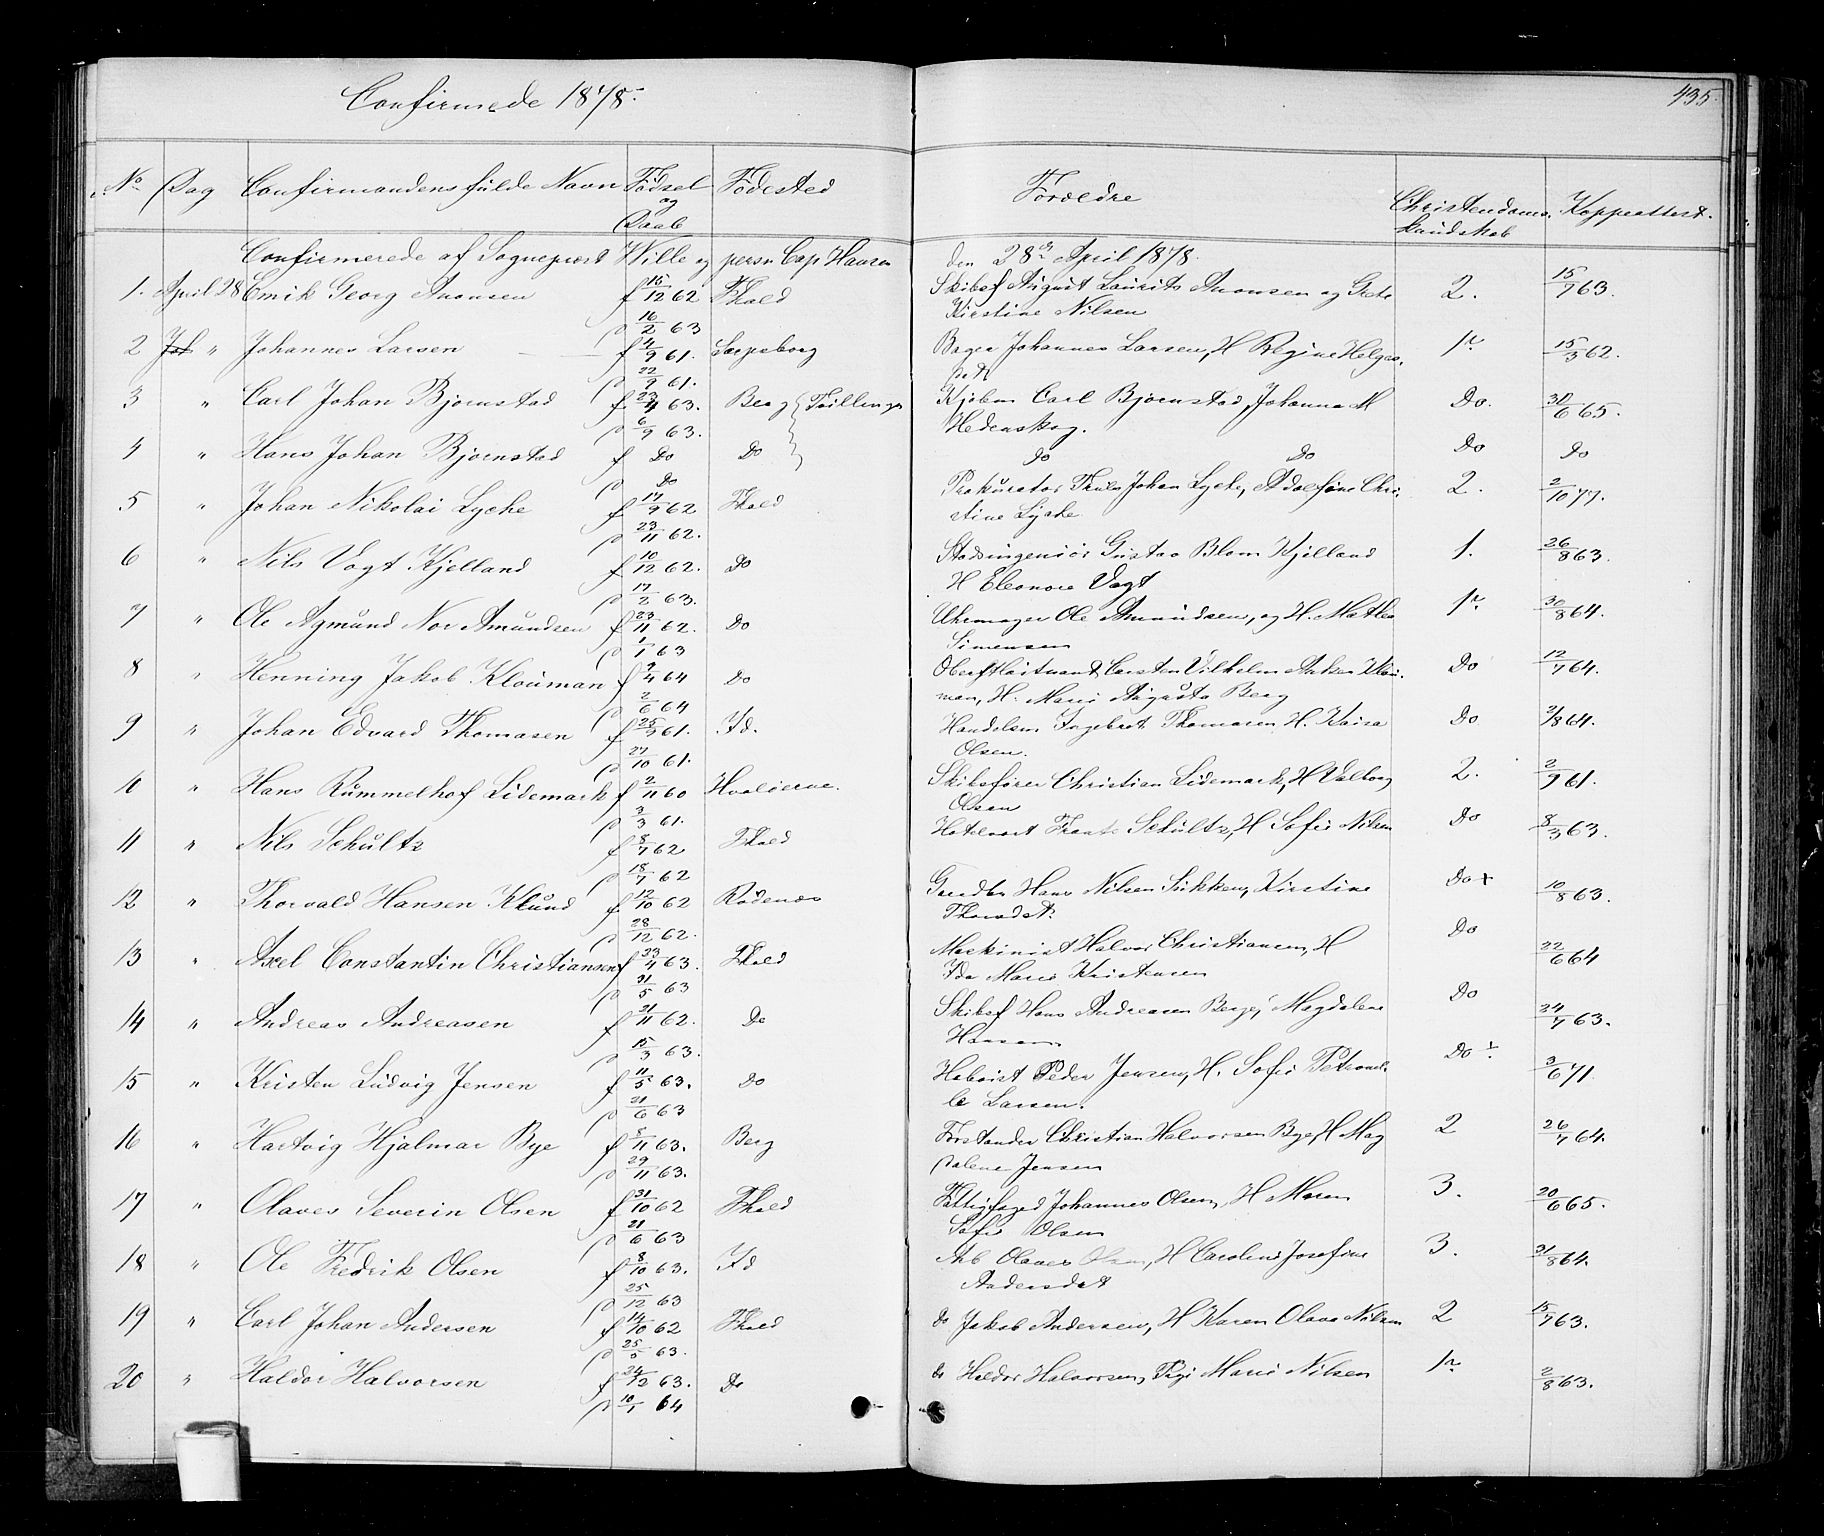 Confirmede 1878.
435.
No Dag Confirmandens fulde Navn Fødsel og Daab Fødested Forældre Christendoms Kundskab Koppeattest.
Confirmerede af Sognepræst Wille og pers. Cap Hansen den 28de April 1878.
1. April 28 Emik Georg Aronsen f 15/12 62 Fhald Skibsf August Laurits Aronsen og Grete 2. 15/7 63.
Kirstine Nilsen
p 16/2 63
2 " Johannes Larsen f 4/9 61. Sarpsborg Bager Johannes Larsen, H Regine Helges- 1r 15/5 62.
p 22/9 61. datr
3 " Carl Johan Bjørnstad f 23/4 63. Berg Tvillinger Kjøbm Carl Bjørnstad, Johanna M Do. 30/6 65.
p 6/9 63. Hedenskog.
4 " Hans Johan Bjørnstad f Do Do do Do Do Do
p Do
5 " Johan Nikolai Lyche f 17/9 62 Fhald Prokurator Truls Johan Lyche, Adolfine Chri- 2. 2/10 77.
p 23/11 62. stine Lyche
6 " Nils Vogt Kjelland f 10/12 62. Do Stadsingeniör Gustav Blom Kjelland 1. 26/8 63.
p 17/2 63. H Eleonore Vogt
7 " Ole Agmund Nor Amundsen f 23/11 62. Do Uhrmager Ole Amundsen, og H. Mathea 1r 30/8 64.
p 1/1 63 Simensen
8 " Henning Jakob Klouman f 9/4 64 Do Oberstløitnant Carsten Vilhelm Anker Klou- Do 12/7 64.
p 2/6 64 man, H. Marie Augusta Berg
9 " Johan Edvard Thomasen f 25/9 61. Id. Handelsm Ingebret Thomasen H. Kaisa Do 2/8 64.
p 27/10 61. Olsen.
10 " Hans Rummelhof Lidemark f 2/11 60 Hvaløerne. Skibsfører Christian Lidemark, H Valborg 2. 2/9 61.
p 3/3 61. Olsen
11 " Nils Schultz f 8/7 62 Fhald Hotelvært Frants Schultz, H Sofie Nilsen Do 8/3 63.
p 18/7 62
12 " Thorvald Hansen Klund f 12/10 62 Rødenæs Gaardbr Hans Nilsen Sukken, Kirstine Do + 10/8 63.
p 28/12 62. Thorsdatr
13 " Axel Constantin Christiansen f 23/4 63. Fhald Maskinist Halvor Christiansen, H Do 22/6 64
p 31/5 63 Ida Marie Kristensen
14 " Andreas Andreasen f 21/11 62. Do Skibsf Hans Andreasen Berge, Magdalene Do 24/7 63.
p 15/3 63. Hansen
15 " Kristen Ludvig Jensen f 11/5 63. Do Peder Jensen, H. Sofie Petronel- Do ÷ 3/6 71.
p 21/6 63 le Larsen.
16 " Hartvig Hjalmar Bye f 8/11 63. Berg Forstander Christian Halvorsen Bye, H Mag 2 26/7 64.
p 29/11 63. dalene Jensen
17 " Olaves Severin Olsen f 31/10 62 Fhald Fattigfoged Johannes Olsen, H Maren 3. 20/6 65.
p 21/6 63 Sofie Olsen
18 " Ole Fredrik Olsen f 8/10 63. Id Arb Olaves Olsen, H Caroline Josefine 3. 31/8 64.
p 25/12 63 Andersdat
19 " Carl Johan Andersen f 14/10 62 Fhald do Jakob Andersen, H Karen Olava Nilsen 2 15/7 63.
p 25/5 63.
20 " Haldor Halvorsen f 24/12 63. Do do Haldor Halvorsen, Pigi Marie Nilsen 1r 2/8 63.
p 10/1 64